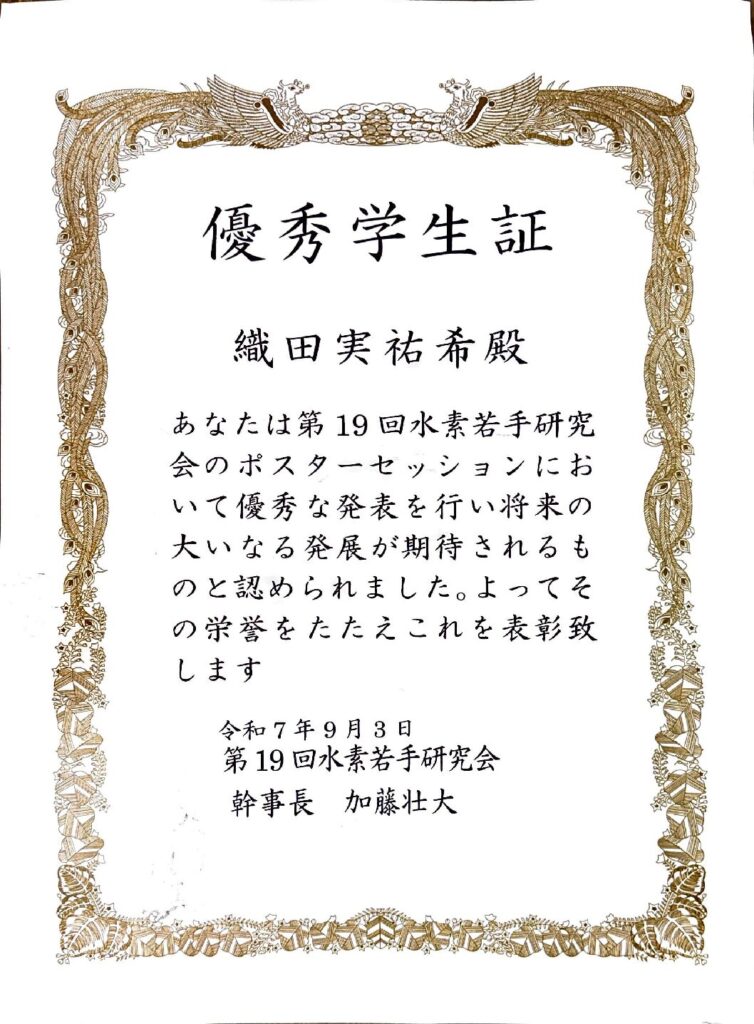 優秀学生証
織田実祐希殿
あなたは第19回水素若手研究
会のポスターセッションにお
いて優秀な発表を行い将来の
大いなる発展が期待されるも
のと認められました。よってそ
の栄誉をたたえこれを表彰致
します
令和7年9月3日
第19回水素若手研究会
幹事長 加藤壮大